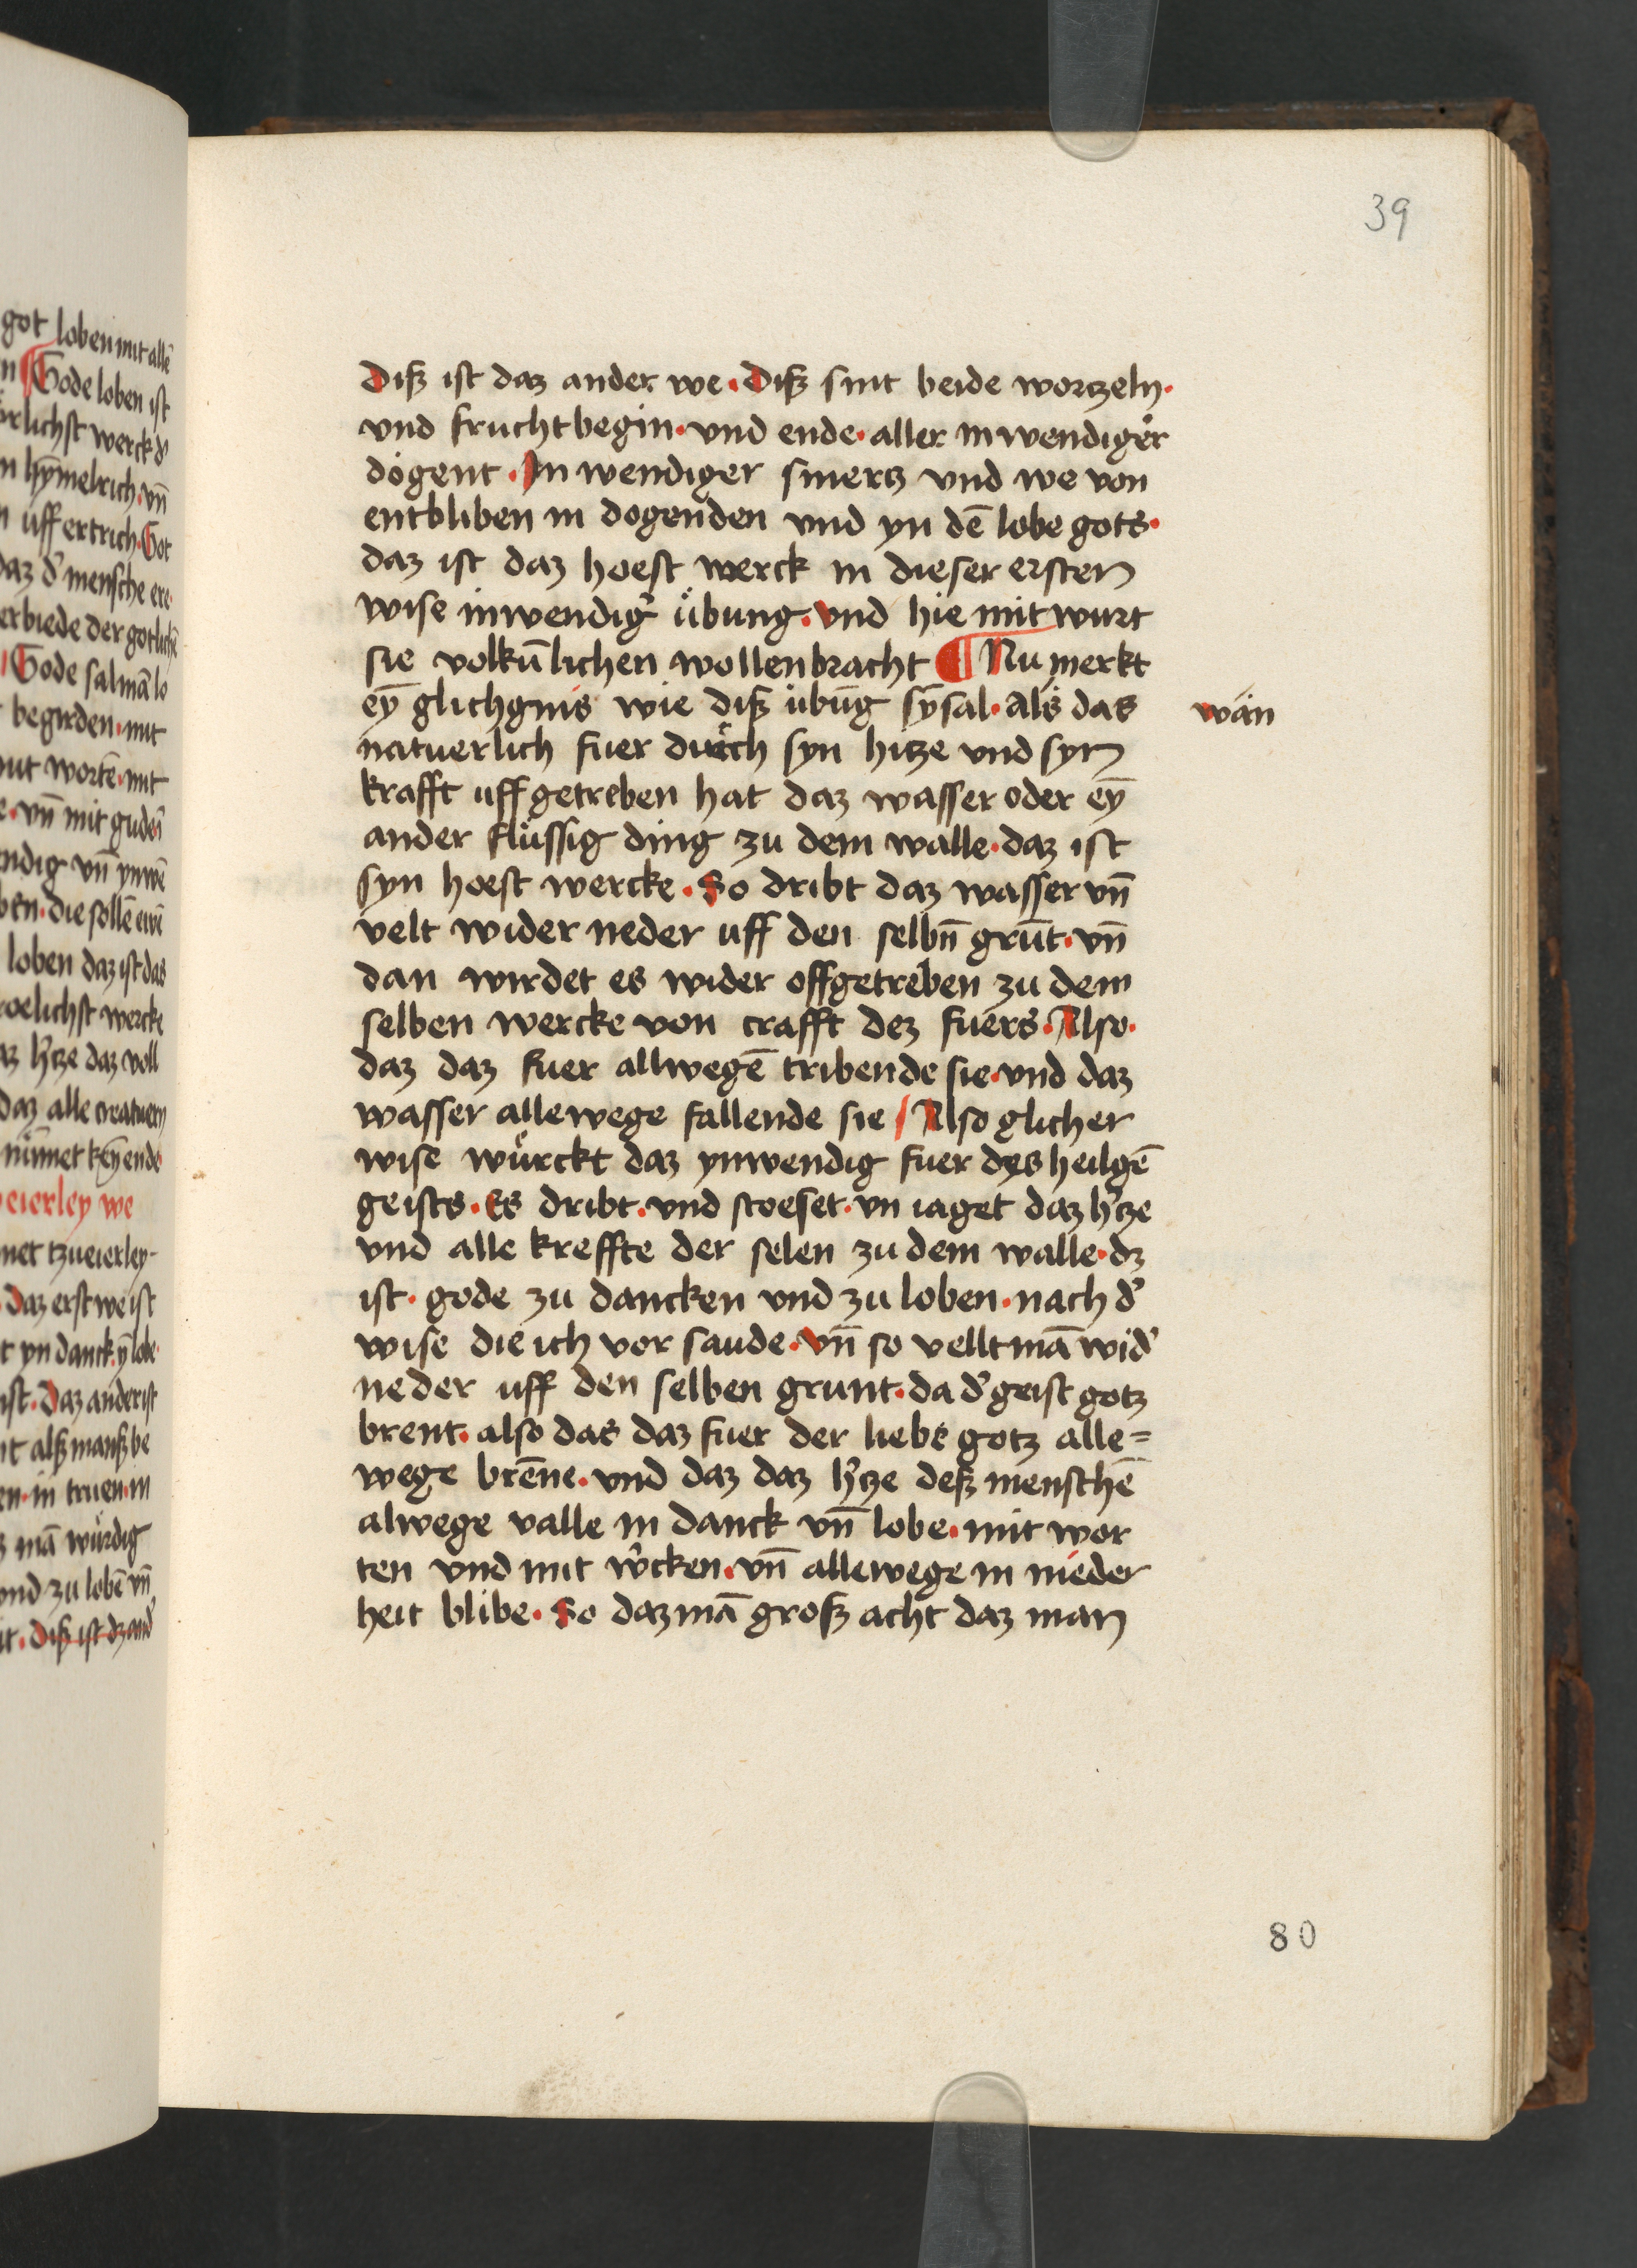 got loben mit allē
Gode loben ist
werck dˀ
hȳmelrich · vn̄
uff ertrich · Got
daz dˀ mensche ere ·
erbiede der gotlichē
Gode sal mā lo
begirden · mit
mit wortē · mit
vn̄ mit gudeñ
vn̄ ynwē
die sollē ewē
loben daz ist das
wercke
hˀtze daz voll
daz alle creatuern
nüm̄et keȳ ende
we
tzueierley ·
Daz erst we ist
yn danck · ȳ lobe ·
ist · Daz ander ist
alß manß be
in truen · in
mā wůrdig
vnd zu lobē vn̄
Diß ist dz andˀ
39
Diß ist daz ander we · Diß sint beide wortzeln ·
vnd frucht begin · vnd ende · aller inwendiger
dogent · In wendiger smertz vnd we von
entbliben in dogenden vnd yn dē lobe gots ·
daz ist daz hoest werck in dieser ersten
wise inwendigˀ übung · vnd hie mit wurt
sie volkūlichen wollenbracht ¶ Nu merkt
eȳ glichgnis wie diß übūg sȳ sal · Als das
wan
natuerlich fuer durch syn hitze vnd syn
krafft uff getreben hat daz wasser oder eȳ
ander flüssig ding zu dem walle · daz ist
syn hoest wercke · So dribt daz wasser vn̄
velt wider neder uff den selbn̄ grūt · vn̄
dan wirdet es wider offgetreben zu dem
selben wercke von crafft dez fuers · Also ·
daz daz fuer allwegē tribende sie · vnd daz
wasser allewege fallende sie / Also glicher
wise wůrckt daz ynwendig fuer dyes heilgē
geists · Es dribt · vnd stoeset · vn iaget daz hˀtze
vnd alle kreffte der selen zu dem walle · dz
ist · gode zu dancken vnd zu loben · nach dˀ
wise die ich vor saude · vn̄ so vellt mā widˀ
neder uff den selben grunt · da dˀ geist gotz
brent · also das daz fuer der liebe gotz alle=
wege brēne · vnd daz daz hˀtze deß menschē
alwege valle in danck vn̄ lobe · mit wor
ten vnd mit wˀcken · vn̄ allewege in nieder
heit blibe · So daz mā groß acht daz man
80